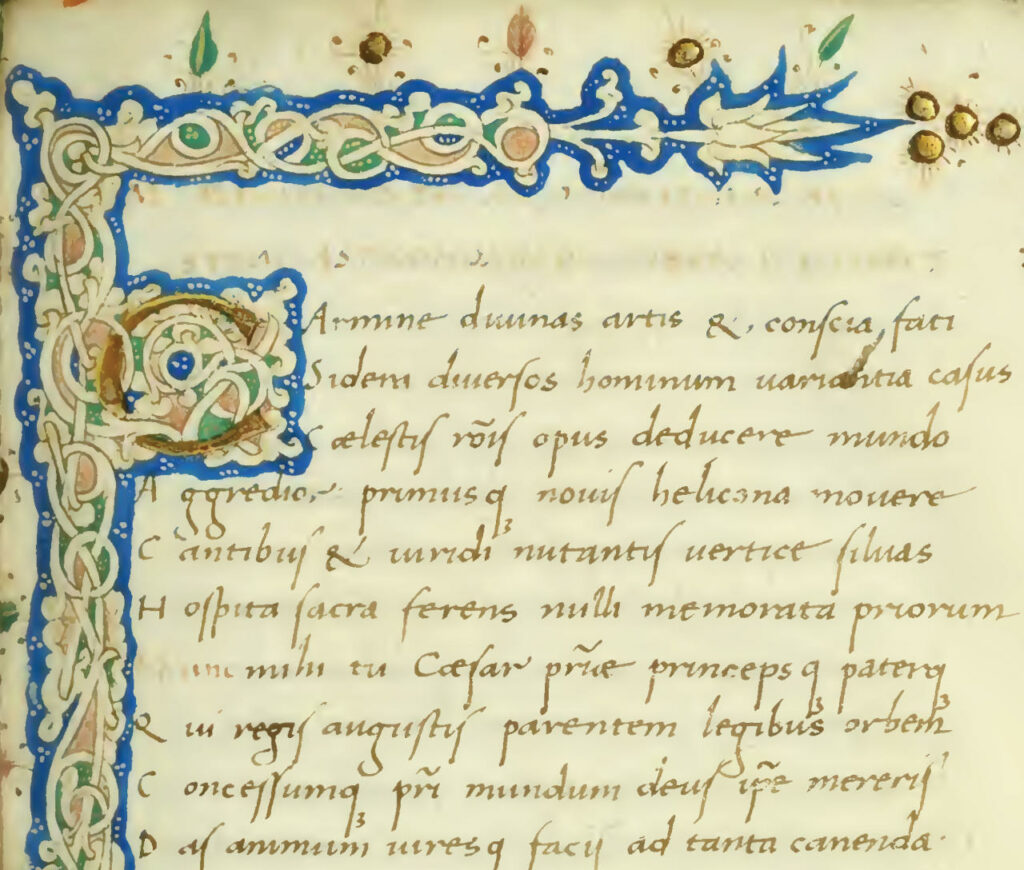 CArmine diuinas artis & conscia fati
Sidera diuersos hominum uariantia casus
Cælestis rōis opus deducere mundo
A ggredior primusq; nouis helicona mouere
C antibus & uiridi nutantis uertice siluas
H ospita sacra ferens nulli memorata priorum
mihi tu Cæsar pr̄ie princepsq; paterq;
Q ui regis augustis parentem legibus orbem
C oncessumq; pr̄i mundum deus ip̄e mereris
D as animum uiresq; facis ad tanta canenda.